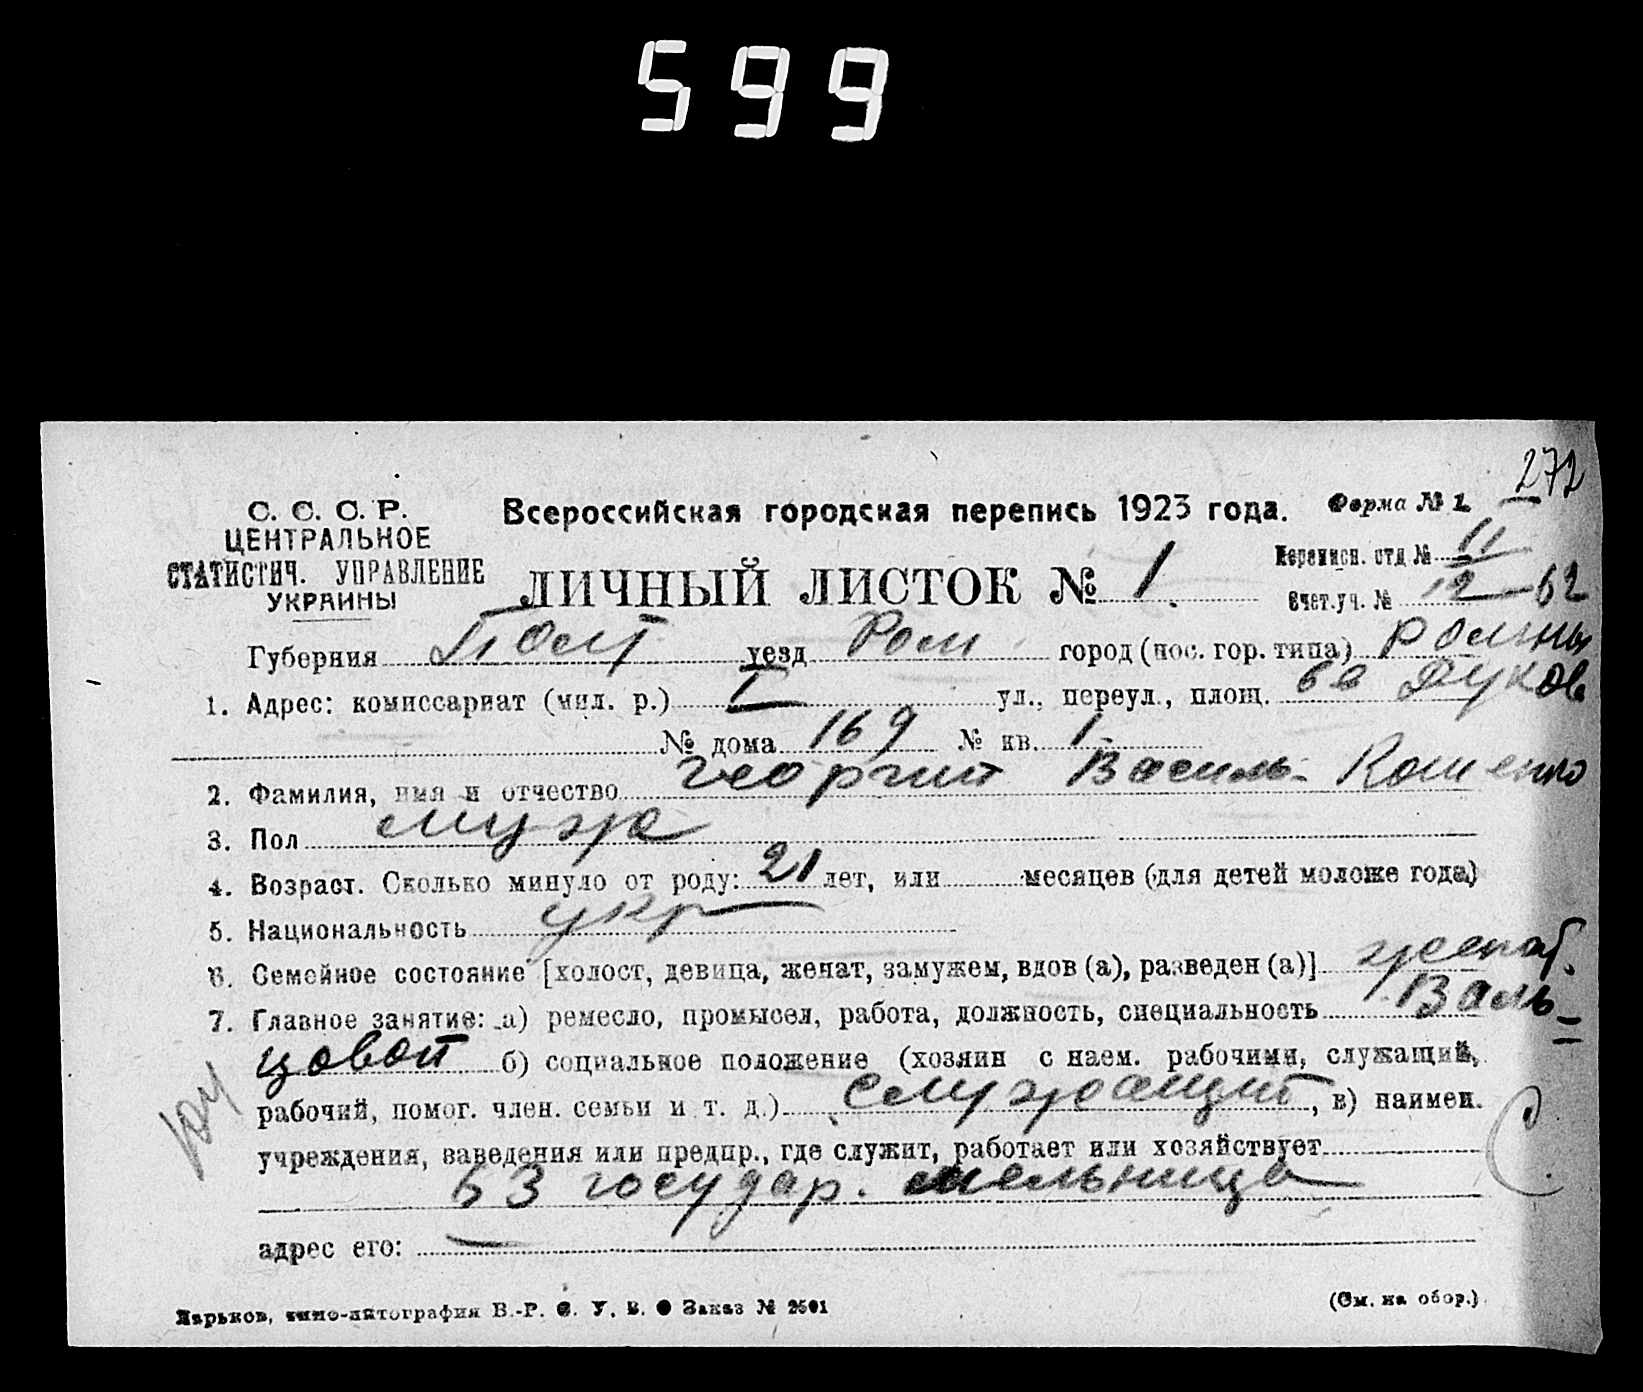 599
272
С. С. С. Р.
ЦЕНТРАЛЬНОЕ
СТАТИСТИЧ. УПРАВЛЕНИЕ
УКРАИНЫ
Всероссийская городская перепись 1923 года. Форма № 1.
ЛИЧНЫЙ ЛИСТОК № 1.
Переписн. отд № 11
Счет.уч. № 12-62
Губерния Полт уезд Ром город (пос. гор. типа) Ромны
1. Адрес: комиссариат (мил. р.) I ул., переул., площ.
№ дома 169 № кв. 1
2. Фамилия, имя и отчество Георгий Василь- Кошенко
3. Пол муж
4. Возраст. Сколько минуло от роду: 21 лет, или месяцев (для детей моложе года)
5. Национальность укр
6. Семейное состояние [холост, девица, женат, замужем, вдов (а), разведен (а)] женат.
7. Главное занятие: а) ремесло, промысел, работа, должность, специальность Валь-
цовой б) социальное положение (хозяин с наем. рабочими, служащий,
рабочий, помог. член. семьи и т. д.) служащий, в) наимен.
учреждения, заведения или предпр., где служит, работает или хозяйствует
53 государ. мельница
адрес его: —
Харьков, кино-литография В.-Р. С. У. В. ● Заказ № 2501
(См. на обор.)